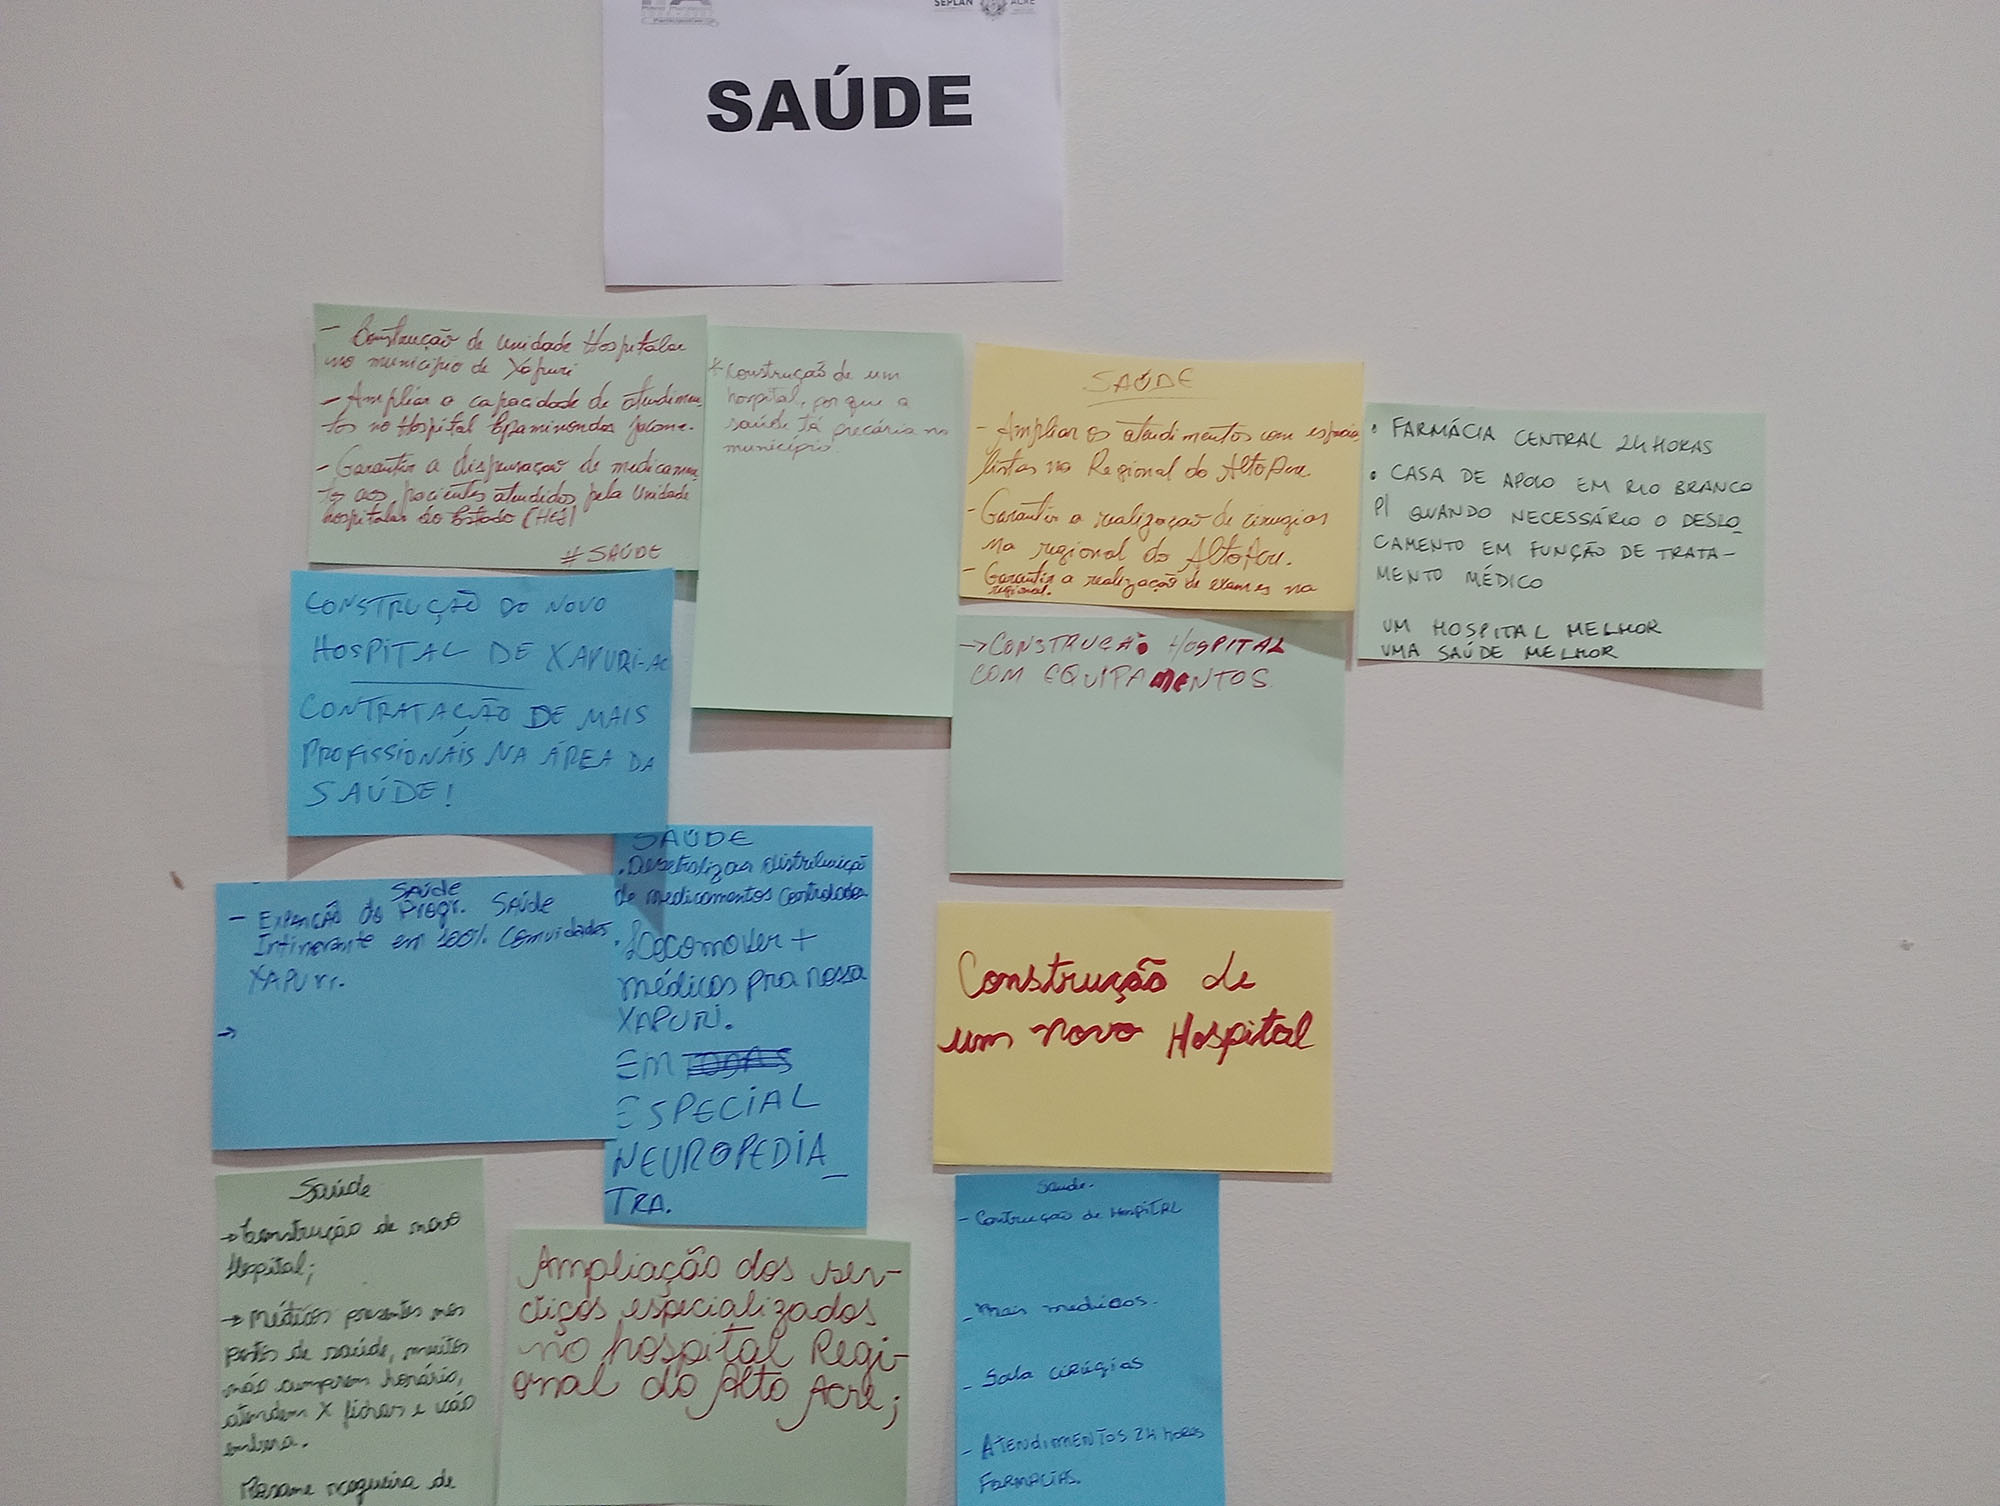 SEPLAN
ACRE
SAÚDE
- Construção de Unidade Hospitalar
no município de Xapuri
- Ampliar a capacidade de atendimen-
tos no Hospital Epaminondas Jácome.
- Garantir a dispensação de medicamen-
tos aos pacientes atendidos pela Unidade
hospitalar do Estado (HEJ)
# SAÚDE
* Construção de um
hospital, por que a
saúde tá precária no
município.
SAÚDE
- Ampliar os atendimentos com especia
listas na Regional do Alto Acre.
- Garantir a realização de cirurgias
na regional do Alto Acre.
- Garantir a realização de exames na
regional.
• FARMÁCIA CENTRAL 24 HORAS
• CASA DE APOIO EM RIO BRANCO
P/ QUANDO NECESSÁRIO O DESLO
CAMENTO EM FUNÇÃO DE TRATA-
MENTO MÉDICO
UM HOSPITAL MELHOR
UMA SAÚDE MELHOR
CONSTRUÇÃO DO NOVO
HOSPITAL DE XAPURI-AC
CONTRATAÇÃO DE MAIS
PROFISSIONAIS NA ÁREA DA
SAÚDE!
→ CONSTRUÇÃO HOSPITAL
COM EQUIPAMENTOS
SAÚDE
- EXPANÇÃO do Progr. SAÚDE
Intinerante em 100% Comuidades
XAPURI.
→
SAÚDE
• Desetralizar distribuição
de medicamentos Controlados
• Locomover +
médicos pra nossa
XAPURI.
EM
ESPECIAL
NEUROPEDIA_
TRA.
Construção de
um novo Hospital
Saúde
→ Construção de novo
Hospital;
→ Médicos presentes nos
postos de saúde, muitos
não cumprem horário,
atendem X fichas e vão
embora.
nogueira de
Ampliação dos ser-
viços especializados
no hospital Regi-
onal do Alto Acre;
Saude.
- Contrução de HOSPITAL
- Mais medicos.
- Sala cirúgias
- ATENDIMENTOS 24 horas
FARMACIAS.